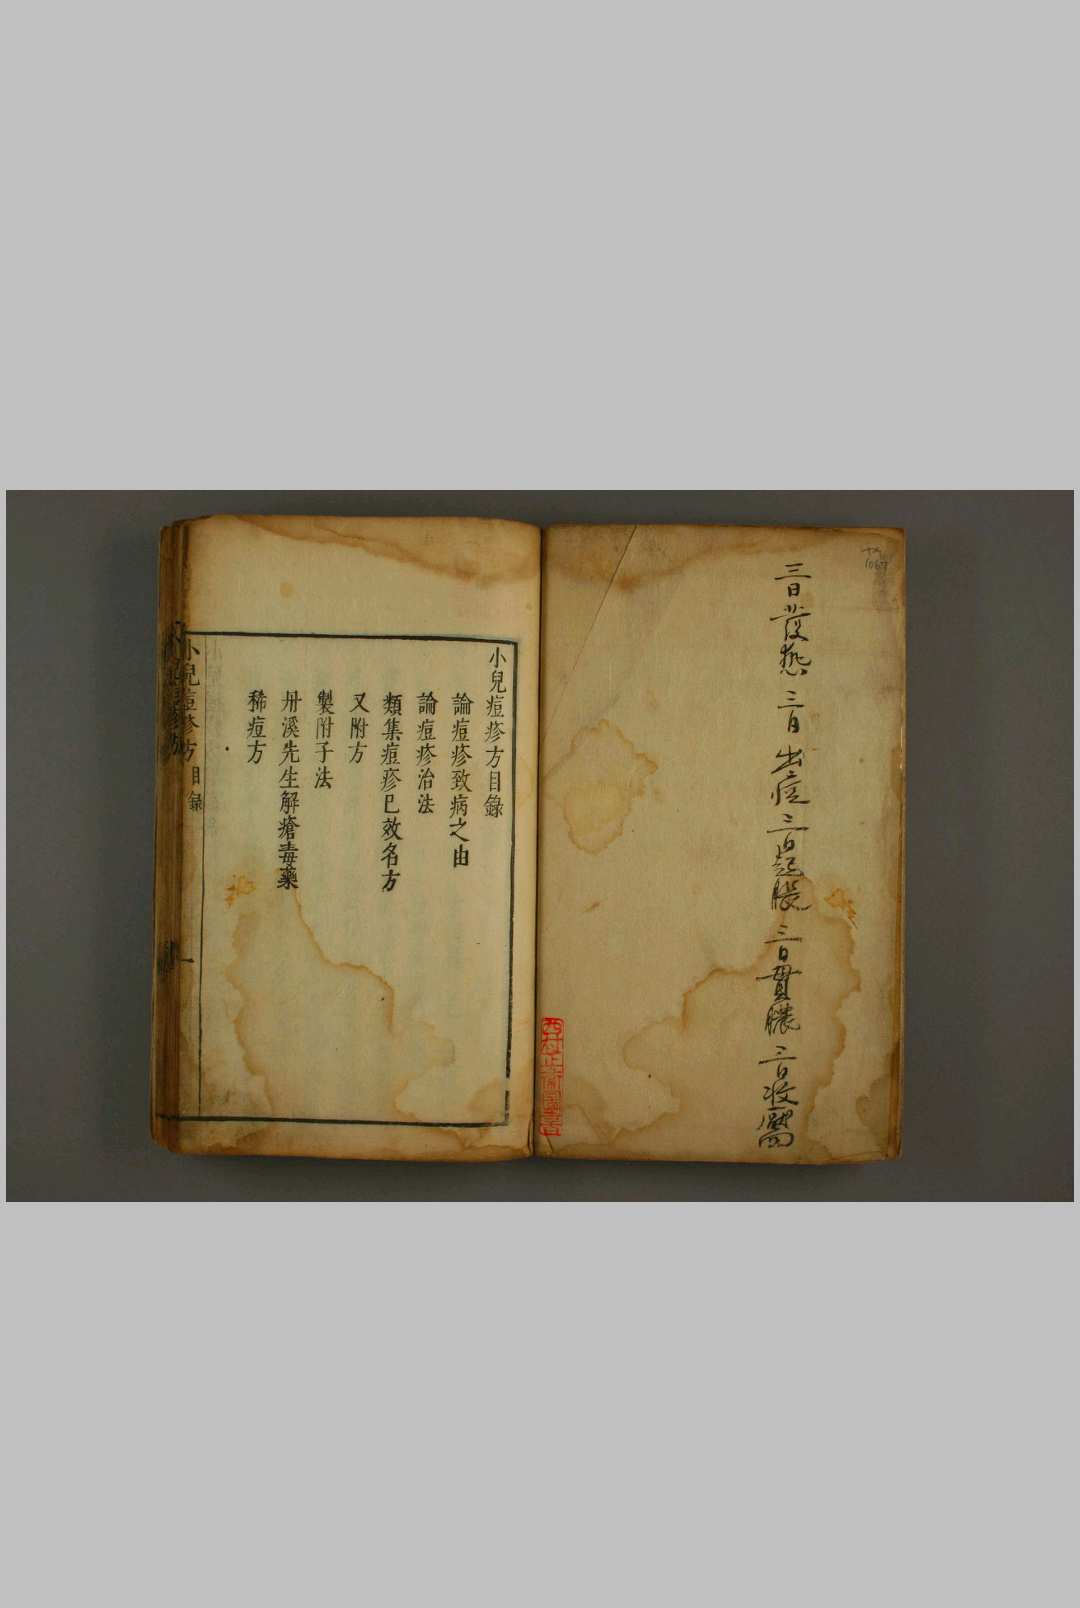 三日發熱三日出痘三日起脹三日貫膿三日收靨
小兒痘疹方目錄
論痘疹致病之由
論痘疹治法
類集痘疹已效名方
又附方
製附子法
丹溪先生解瘡毒藥
稀痘方
小兒痘疹方
目錄
一